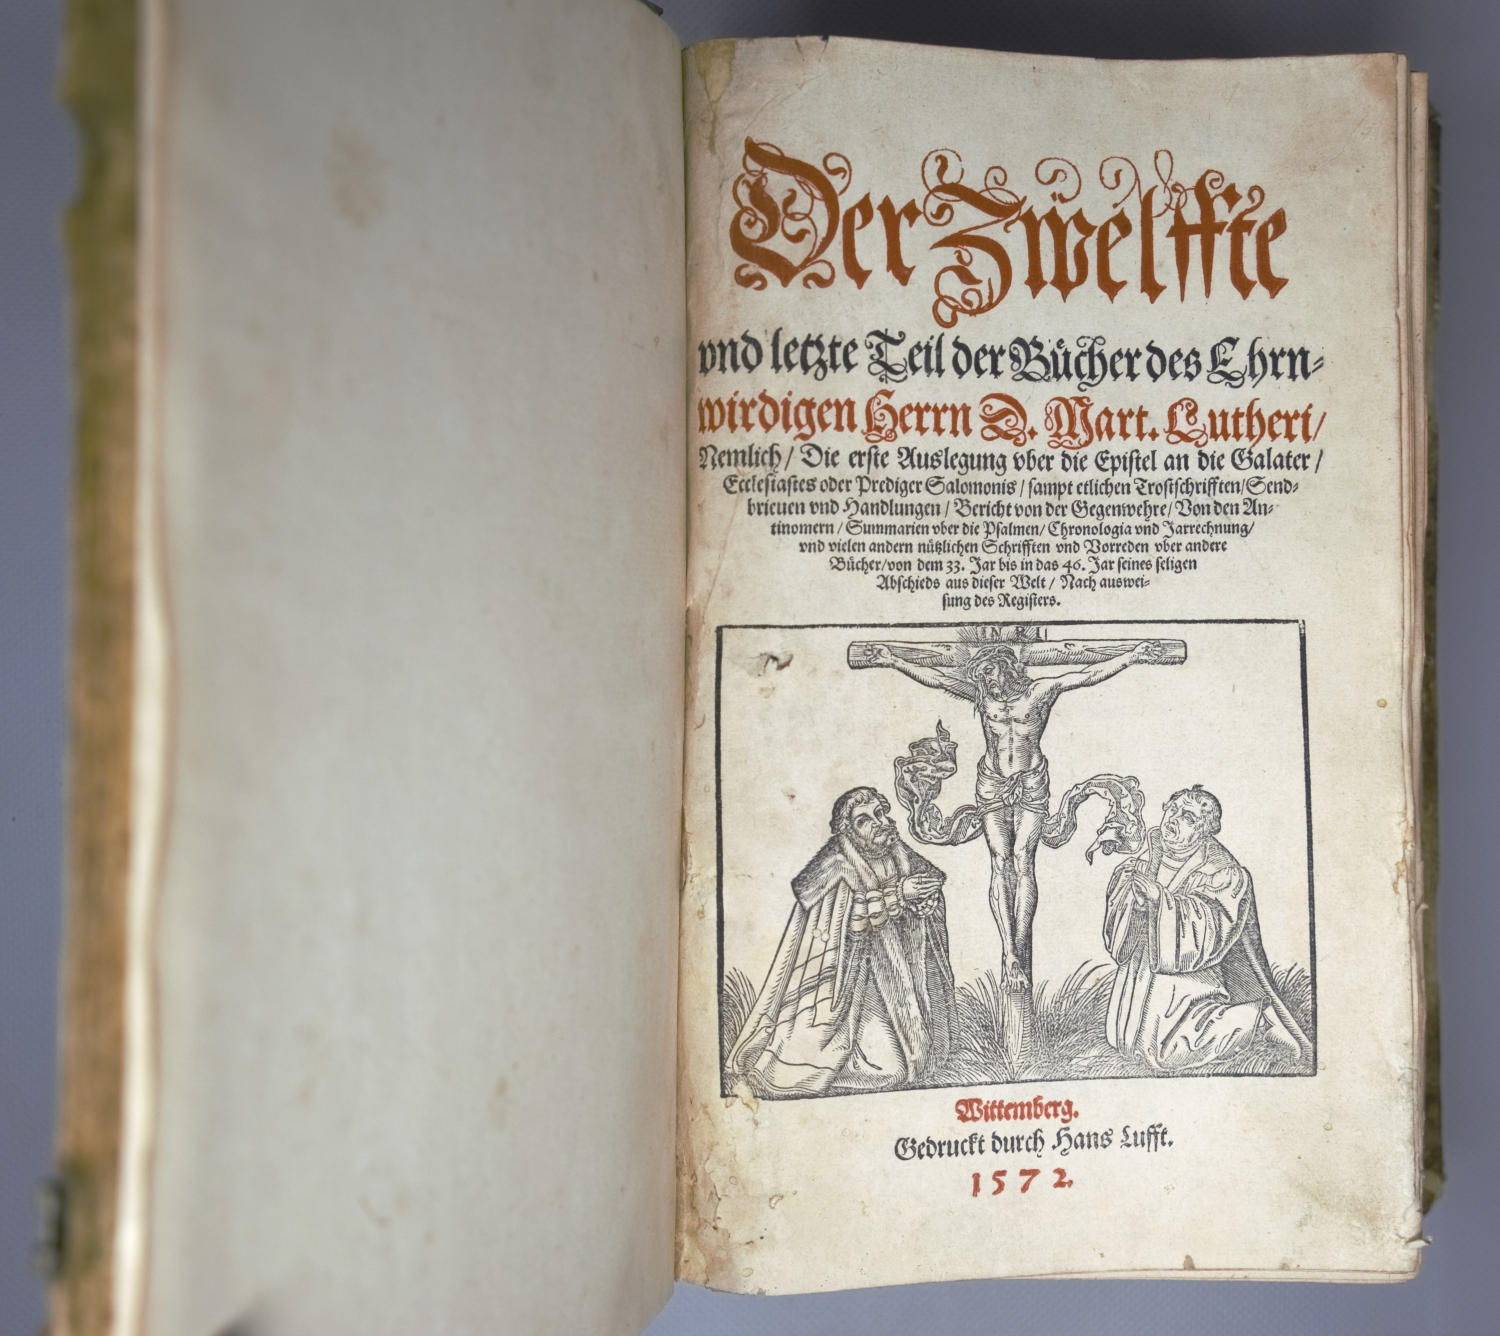 Der Zwelffte
vnd letzte Teil der Bücher des Ehrn-
wirdigen Herrn D. Mart. Lutheri/
Nemlich/ Die erste Auslegung vber die Epistel an die Galater/
Ecclesiastes oder Prediger Salomonis/ sampt etlichen Trostschrifften/ Send-
brieuen vnd Handlungen/ Bericht von der Gegenwehre/ Von den An-
tinomern/ Summarien vber die Psalmen/ Chronologia vnd Jarrechnung/
vnd vielen andern nützlichen Schrifften vnd Vorreden vber andere
Bücher/ von dem 33. Jar bis in das 46. Jar seines seligen
Abschieds aus dieser Welt/ Nach auswei-
sung des Registers.
INRI
Wittemberg.
Gedruckt durch Hans Lufft.
1572.